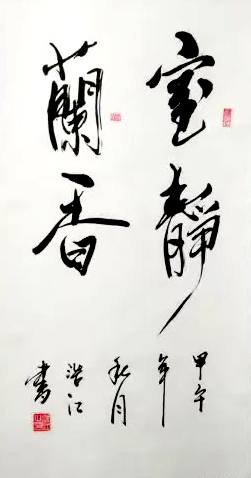 室靜
蘭香
甲午
年
秋月
浩江
書